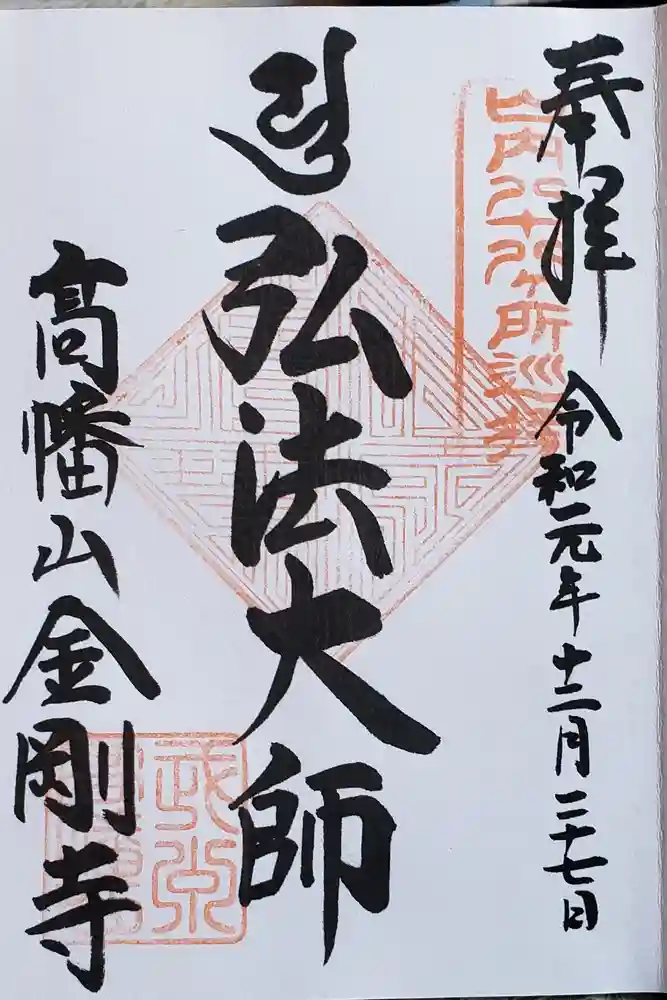 奉拝
令和元年十二月二十七日
山内八十八ヶ所巡拝
弘法大師
高幡山金剛寺